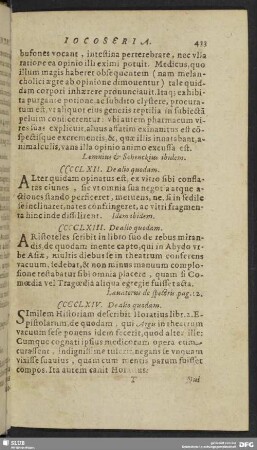 IOCOSERIA. 433
bufones vocant, intestina perterebrare, nec vlla
ratione ea opinio illi eximi potuit. Medicus, quo
illum magis haberet obsequentem (nam melan-
cholici ægre ab opinione dimouentur) tale quid-
dam corpori inhærere pronunciauit. Itaq; exhibi-
ta purgante potione ac subdito clystere, procura-
tum est, vt aliquot eius generis reptilia in subiectā
peluim conijcerentur: vbi autem pharmacum vi-
res suas explicuit, aluus
spectusq; ue excrementis, &, quæ illis innatabant, a-
nimalculis, vana illa opinio animo excussa est.
Lemnius & Schenckius ibidem.
CCCCLXII. De alio quodam.
ALter quidam opinatus est, ex vitro sibi confla-
tas clunes, sic vt omnia sua negotia atque a-
ctiones stando perficeret, metuens, ne, si in sedile
se inclinaret, nates confringeret, ac vitri fragmen-
ta hinc inde dissilirent. Idem ibidem.
CCCCLXIII. De alio quodam.
ARistoteles scribit in libro suo de rebus miran-
dis, de quodam mente capto, qui in Abydo vr-
be Asiæ, multis diebus se in theatrum conferens
vacuum, sedebat, & non minus manuum complo-
sione testabatur sibi omnia placere, quam si Co-
mœdia vel Tragœdia aliqua egregie fuisset acta.
Lauaterus de spectris pag. 12.
CCCCLXIV. De alio quodam.
SImilem Historiam describit Horatius libr. 2. E-
pistolarum, de quodam, qui Argis in theatrum
vacuum sese ponens idem fecerit, quod alter ille:
Cumque cognati ipsius medicorum opera eum
curassent, indignissime tulerit, negans se vnquam
vixisse suauius, quam cum mentis parum fuisset
compos. Ita autem canit Horatius:
T
SLUB